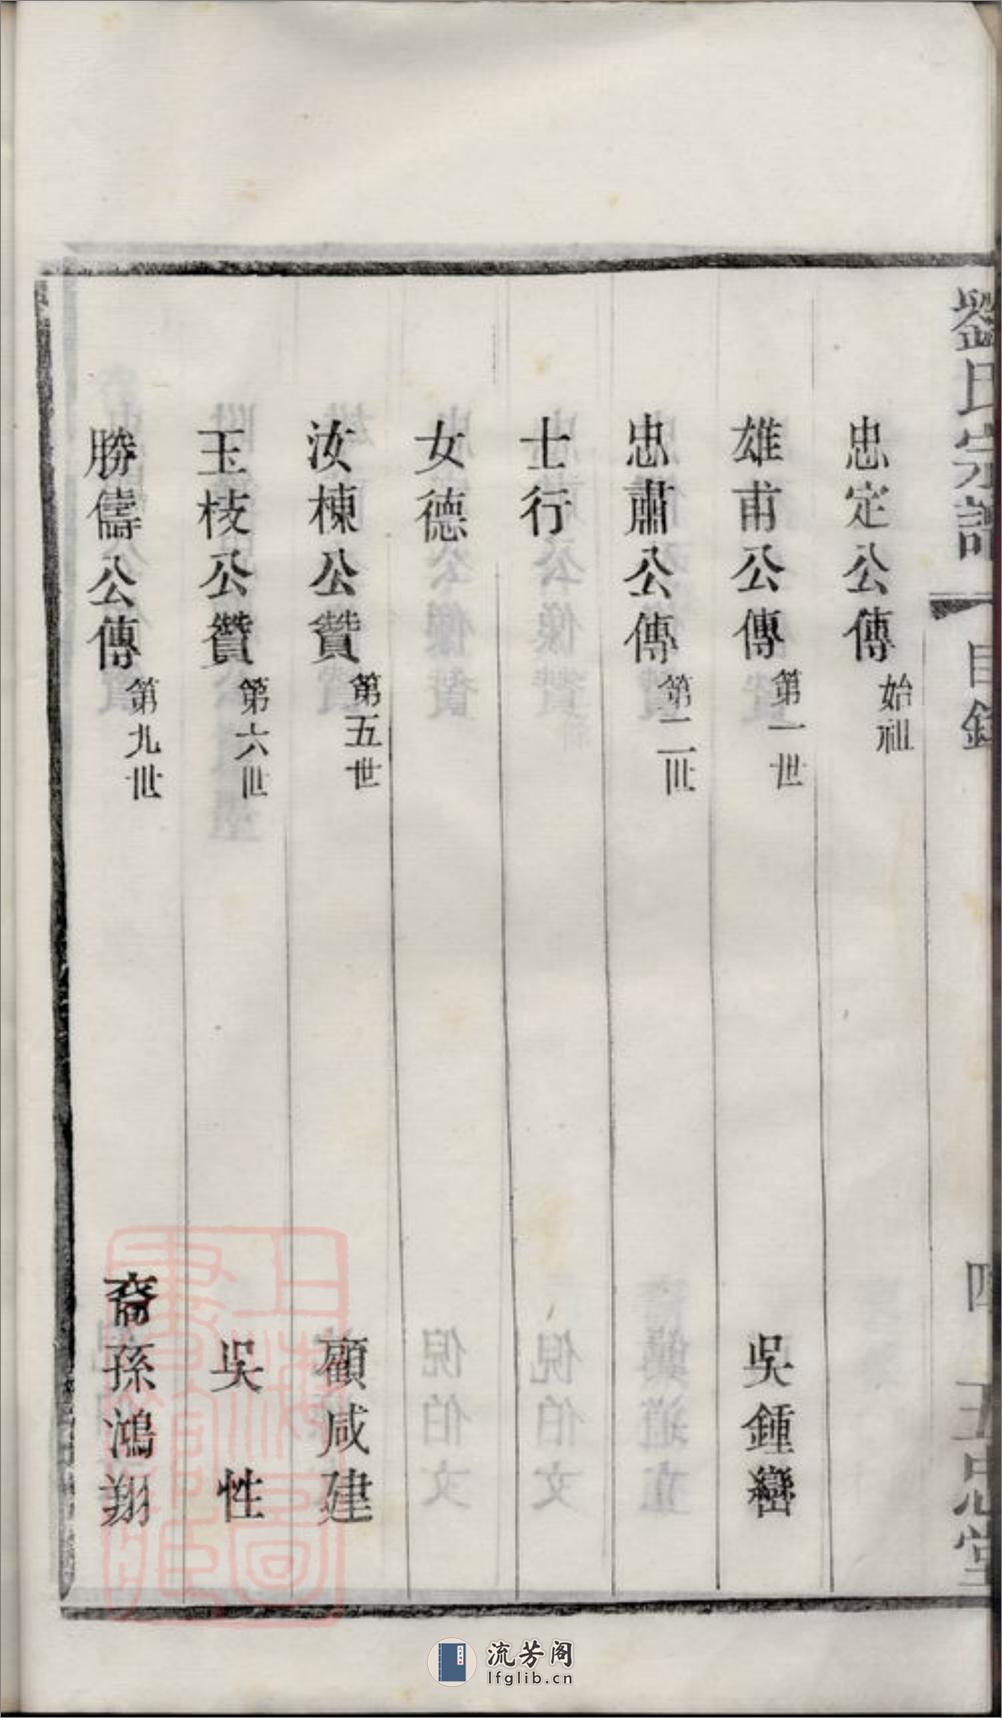 劉氏宗譜 目錄 四 五忠堂
忠定公傳 始祖
雄甫公傳 第一世 吳鍾巒
忠肅公傳 第二世
士行
女德
汝棟公贊 第五世 顧咸建
玉枝公贊 第六世 吳性
勝儔公傳 第九世 裔孫鴻翔
上海圖書館藏
流芳阁
lfglib.cn